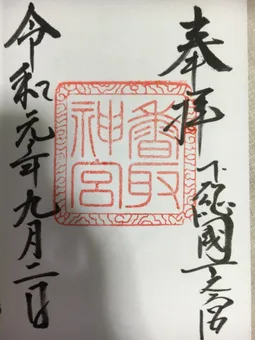 奉拝
下総國一之宮
香取神宮
令和元年九月二日